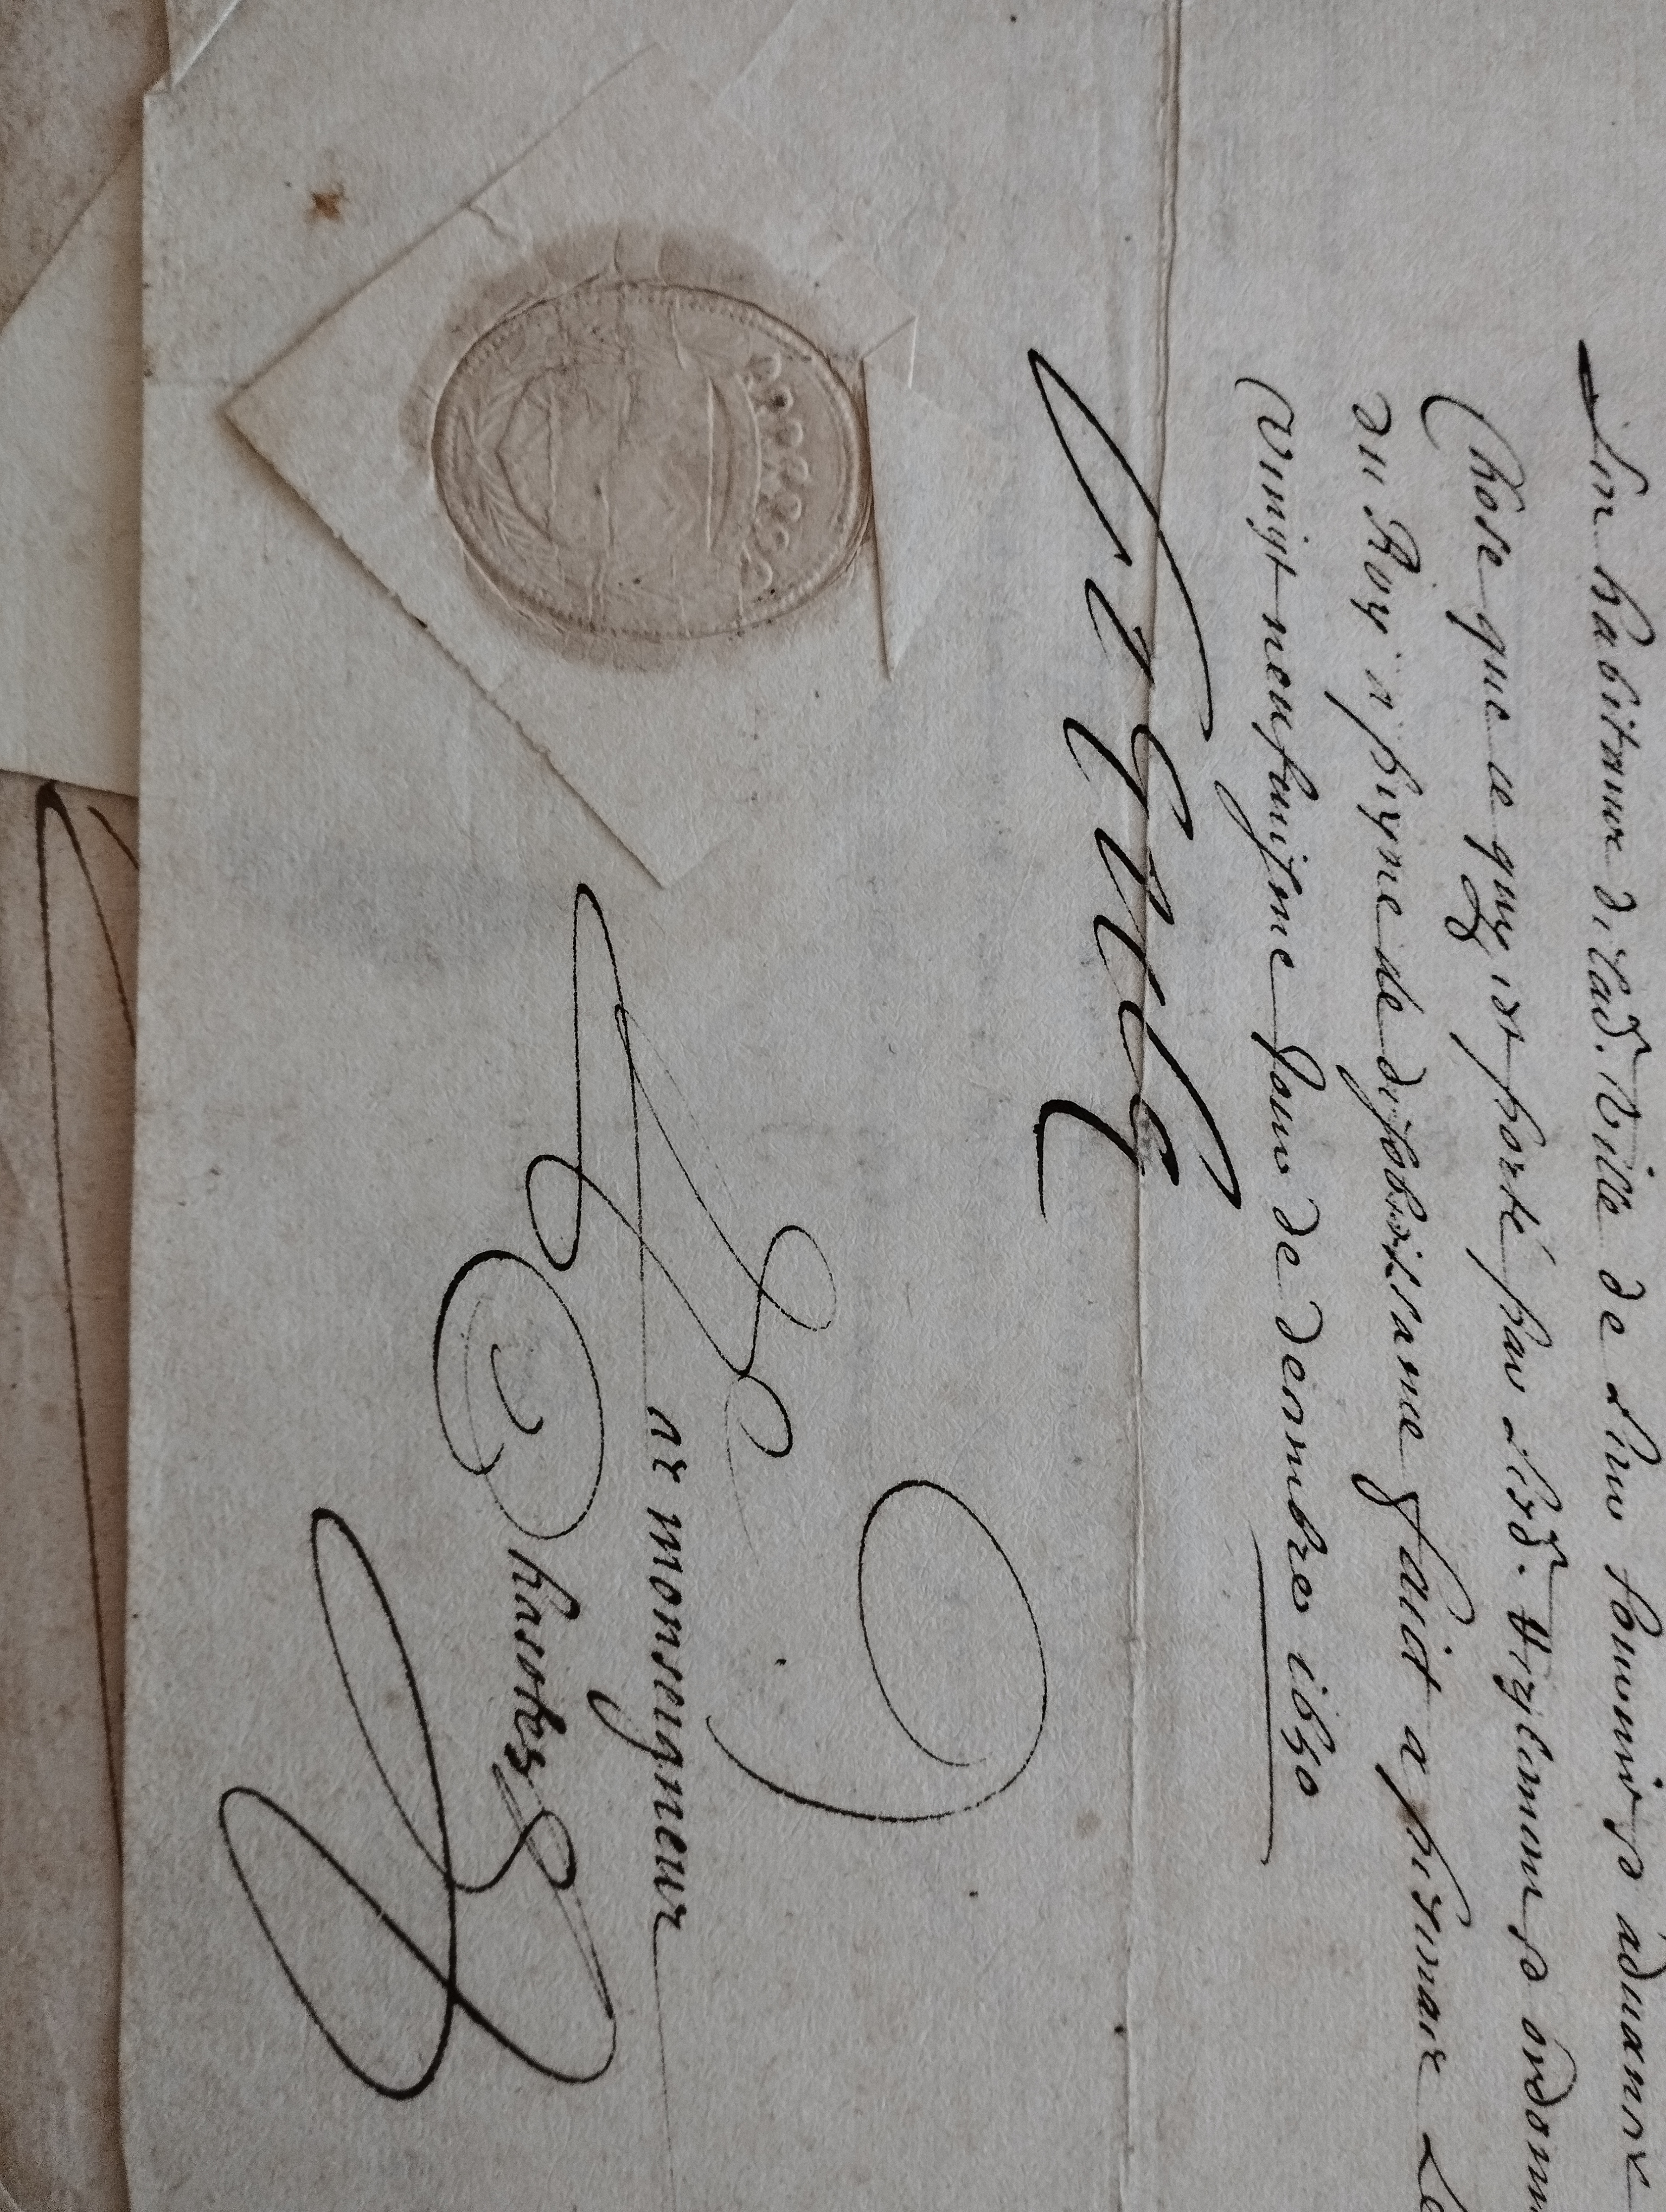 Les habitans de lad. Ville de Leur fournir et advancer
Chose que ce quy est porté par Lesd. Reglemens et ordonn
du Roy a peyne de desobeissance faict a pesenace Le
vingt neufviesme Jour de decembre 1650
Par monseigneur
Chasotes